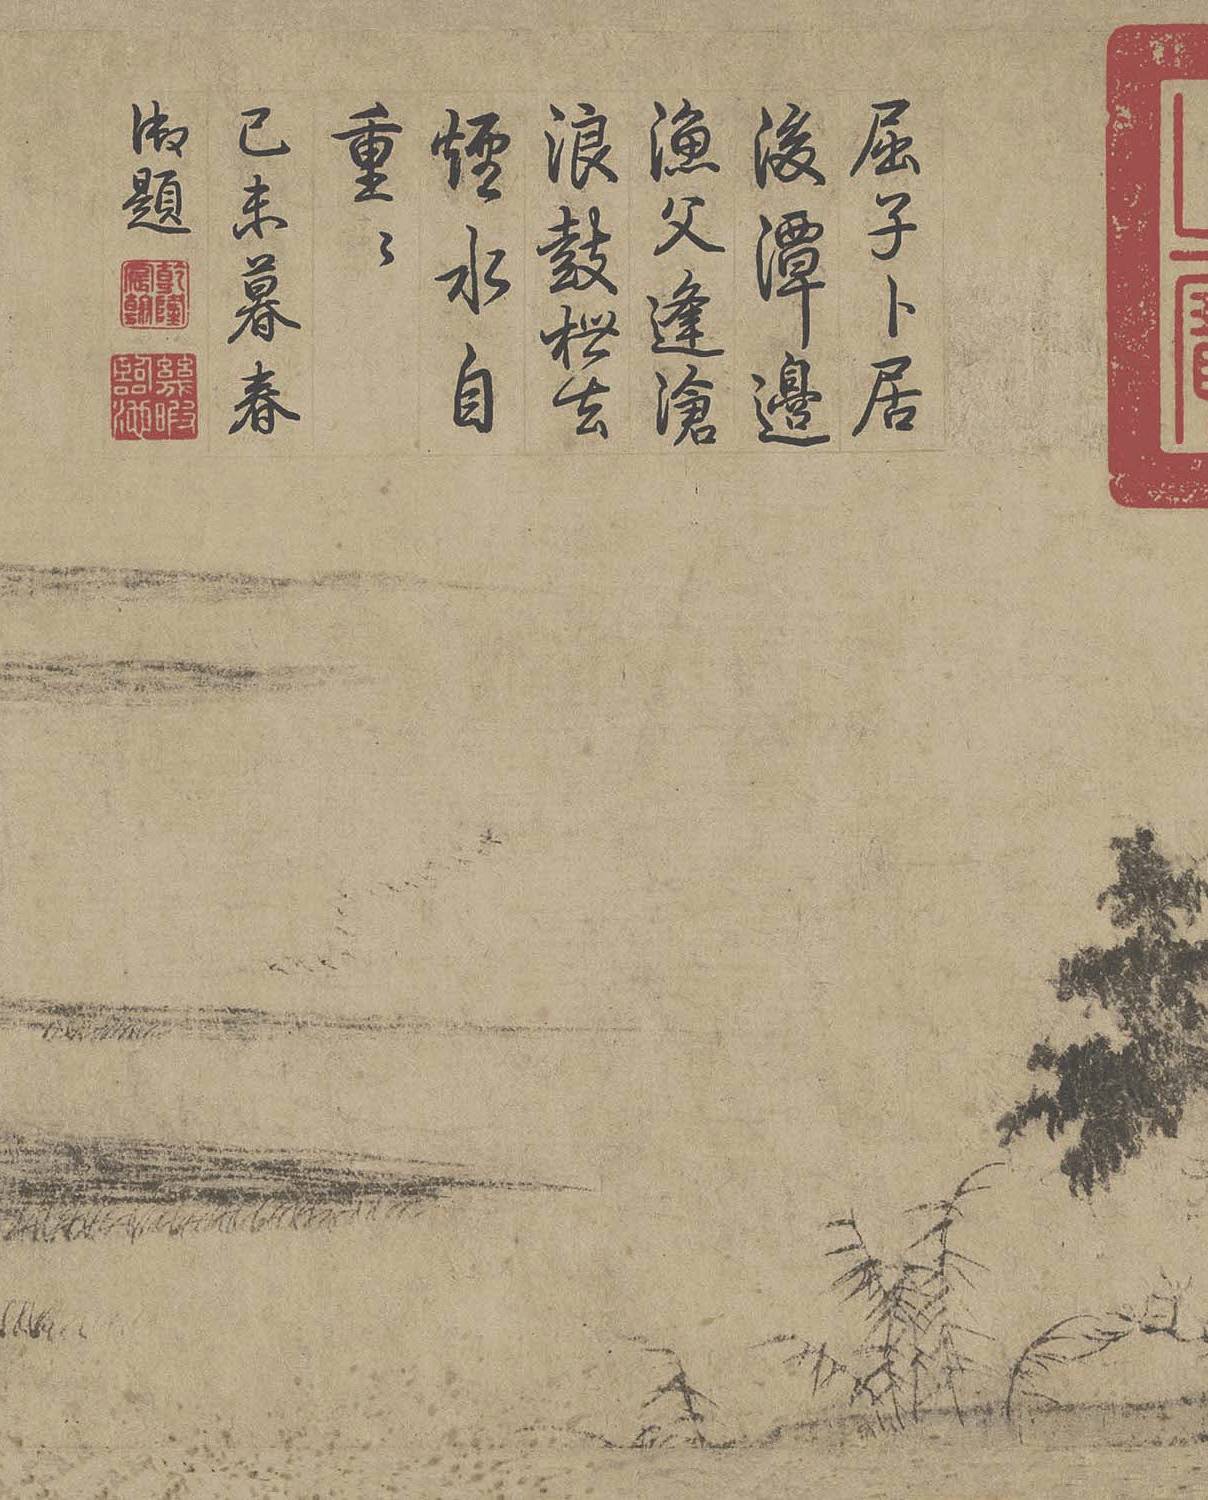 屈子卜居
後潭邊
漁父逢滄
浪鼓枻去
煙水自
重〻
己未暮春
御題
乾隆
宸翰
幾暇
臨池